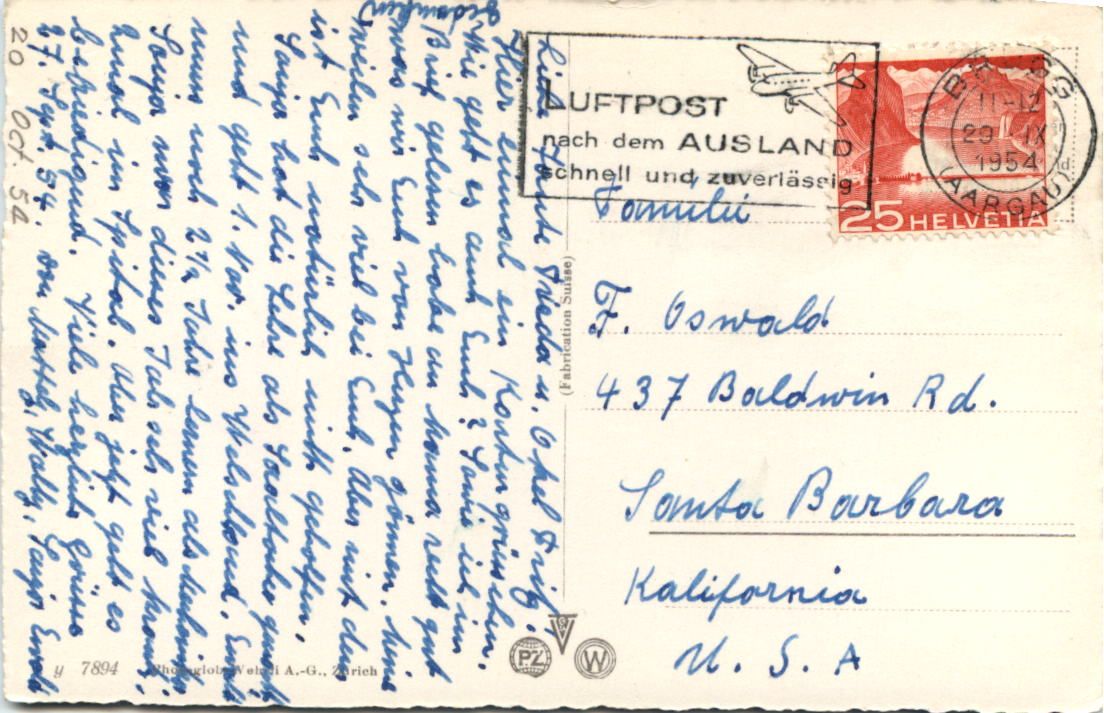 Liebe Tante Frieda u. Onkel Fritz.
Hier einmal ein Kartengrüsschen.
Wie geht es auch Euch? Sowie ich im
Brief gelesen habe an Mama recht gut
was wir Euch von Herzen gönnen.
weilen sehr viel bei Euch. Aber mit den
Gedanken
ist Euch natürlich nicht geholfen.
Sonja hat die Lehre als gemacht
und geht 1. Nov. ins Welschland. Ernst
muss noch 2½ Jahre lernen als
Sonja war dieses Jahr sehr viel krank,
2mal im Spital. Aber jetzt geht es
befriedigend. Viele herzliche Grüsse
27. Sept. 54. von Walty, Ernst
20 Oct. 54
LUFTPOST
nach dem AUSLAND
schnell und zuverlässig
BRUGG
11-12
29. IX
1954
(AARGAU)
25 HELVETIA
Familie
F. Oswald
437 Baldwin Rd.
Santa Barbara
Kalifornia
U. S. A
(Fabrication Suisse)
PZ
W
y 7894 Photoglob-Wehrli A.-G., Zürich